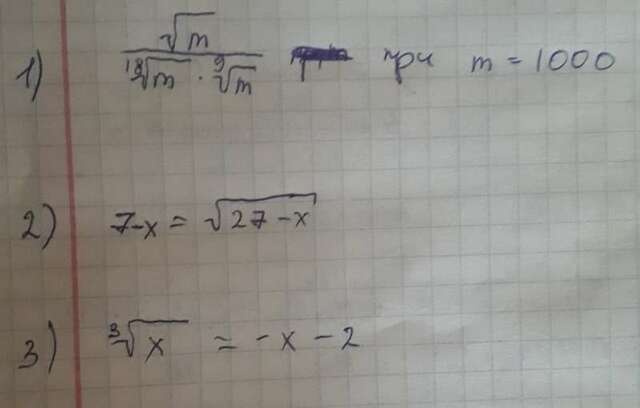 1) √m / (¹⁸√m · ⁹√m) при m = 1000
2) 7-x = √(27-x)
3) ³√x = -x-2